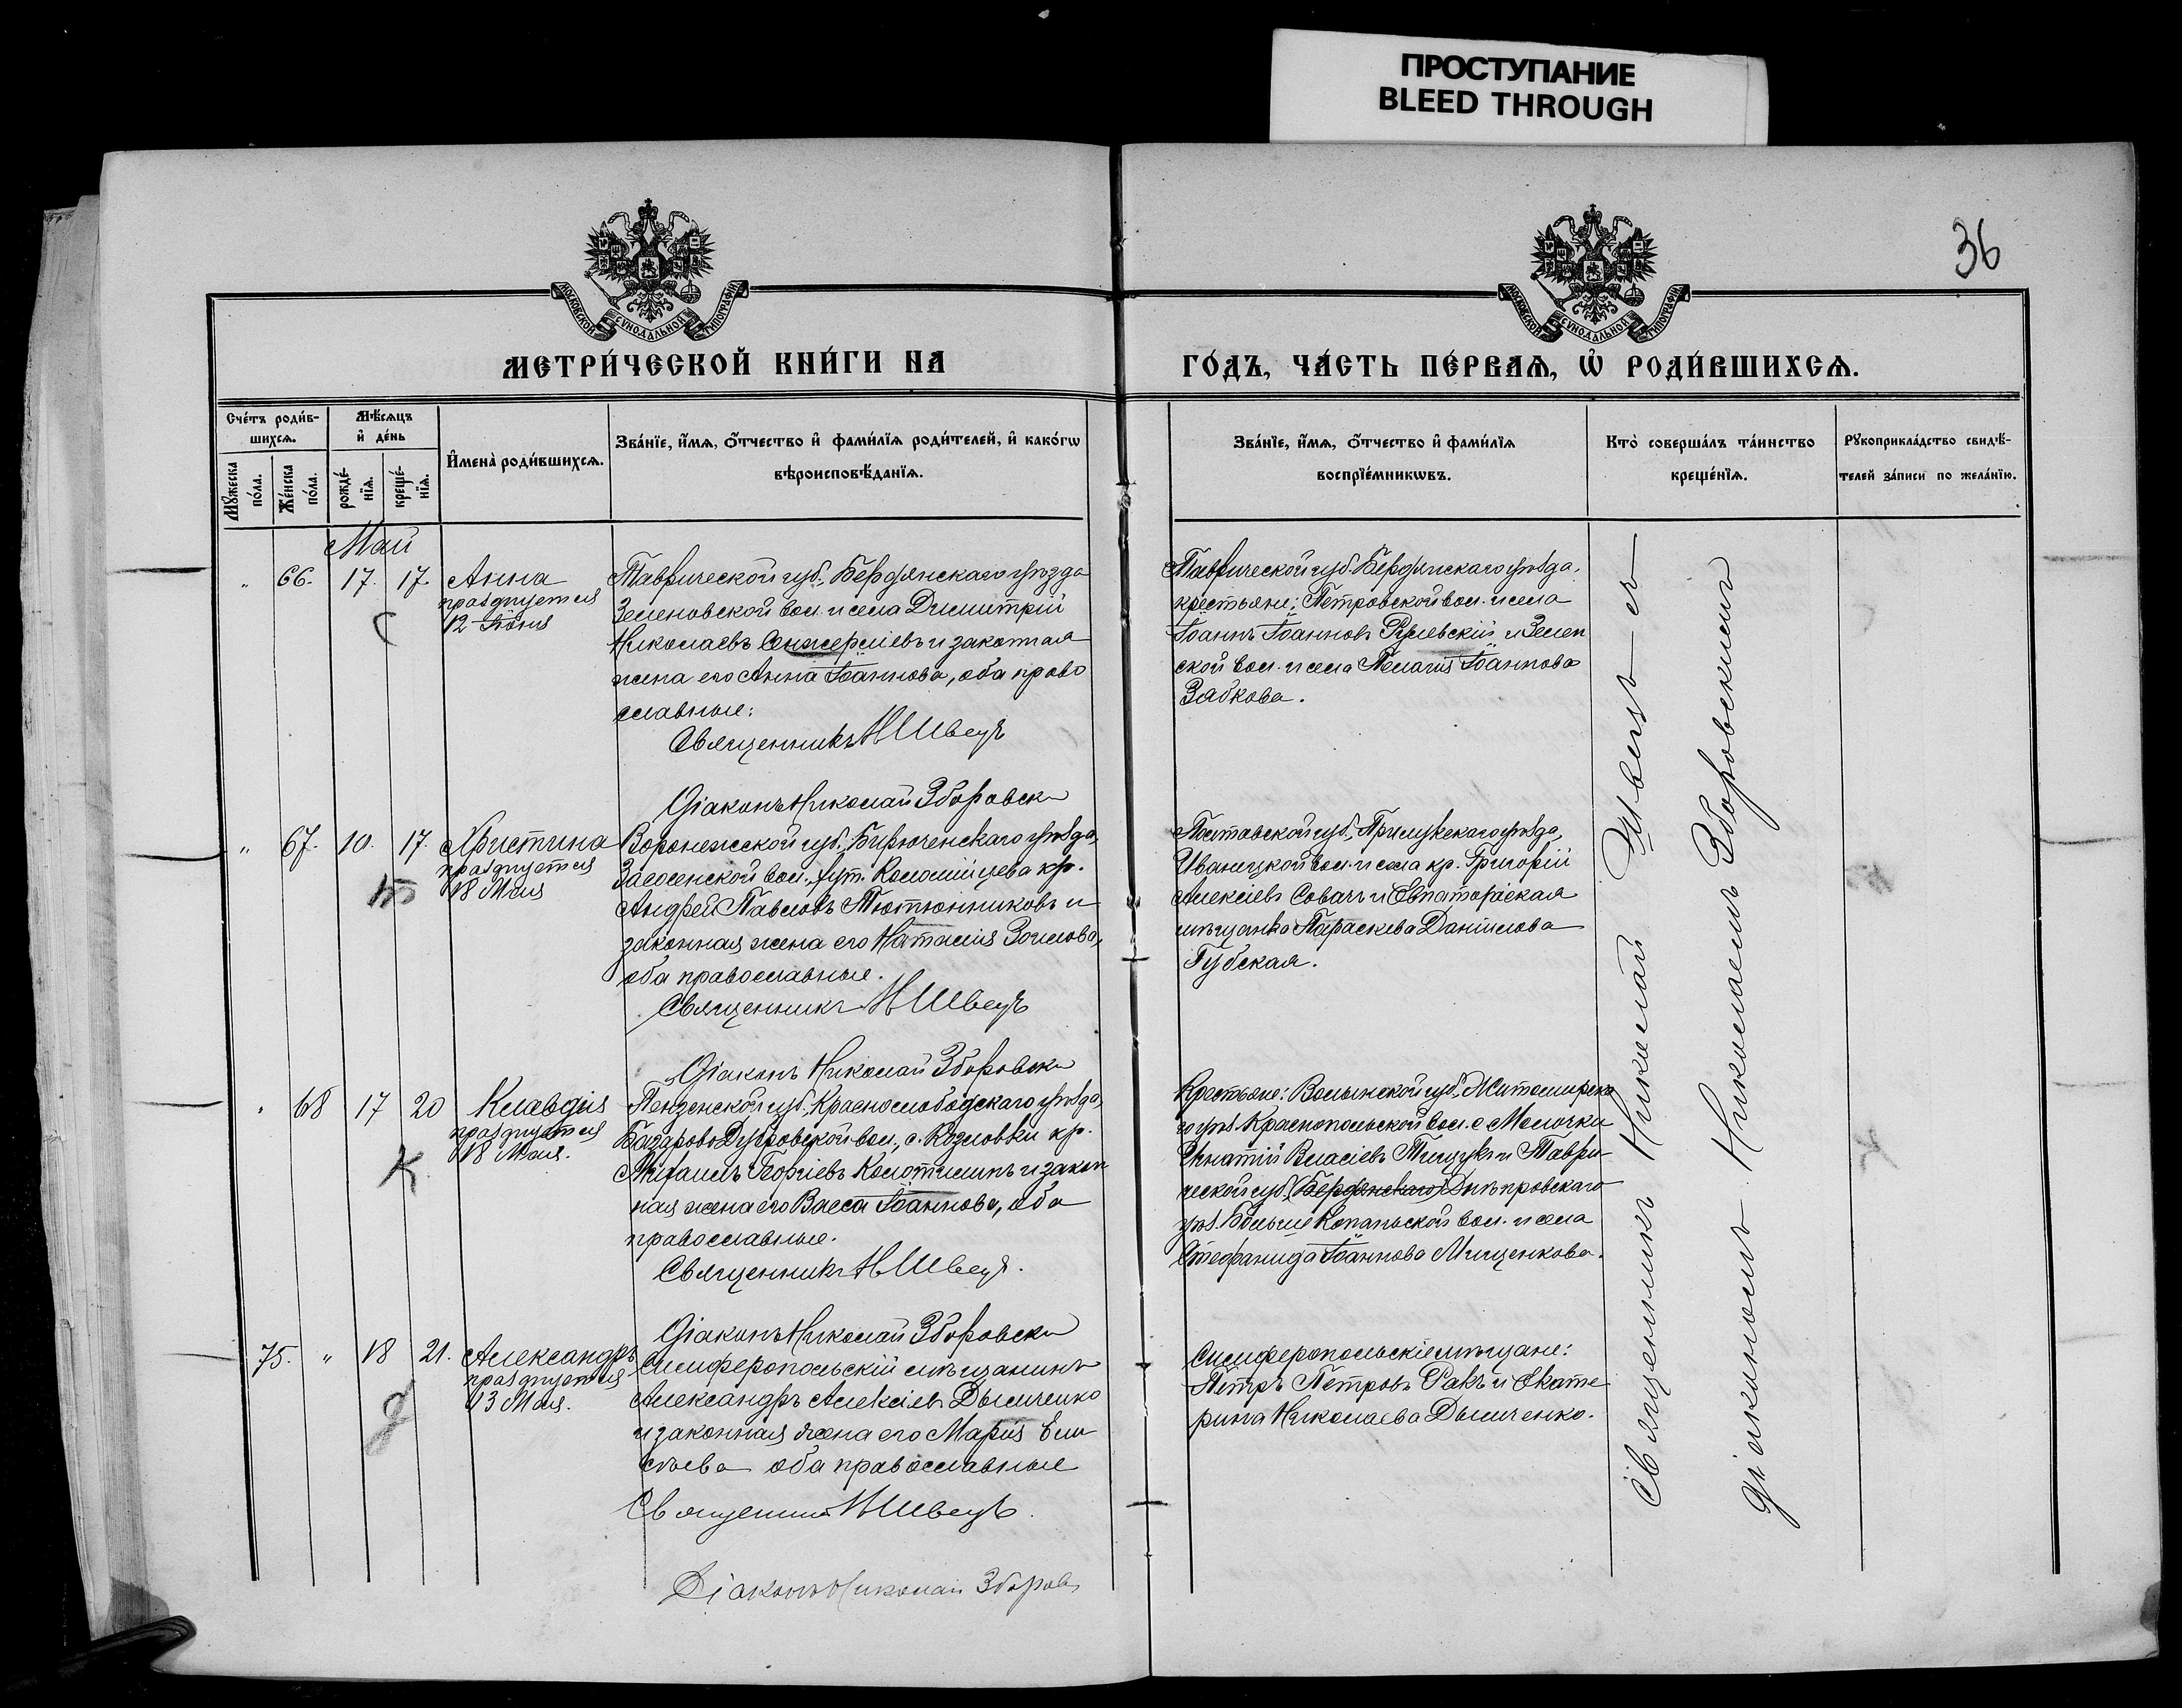 ПРОСТУПАНИЕ
BLEED THROUGH
36
МОСКОВСКОЙ СѴНОДАЛЬНОЙ ТИПОГРАФІИ
МОСКОВСКОЙ СѴНОДАЛЬНОЙ ТИПОГРАФІИ
МЕТРИ́ЧЕСКОЙ КНИ́ГИ НА
ГО́ДЪ, ЧА́СТЬ ПЕ́РВАѦ, Ѡ҆ РОДИ́ВШИХСѦ.
Сче́тъ роди́в-
шихсѧ.
Мѣ́сѧцъ
и҆ де́нь
Мꙋ́жеска
по́ла.
Же́нска
по́ла.
рожде́-
нїѧ.
креще́-
нїѧ.
И҆мена̀ роди́вшихсѧ.
Зва́нїе, и҆́мѧ, ѻ҆́тчество и҆ фами́лїѧ роди́телей, и҆ како́гѡ
вѣроисповѣ́данїѧ.
Зва́нїе, и҆́мѧ, ѻ҆́тчество и҆ фами́лїѧ
воспрїе́мникѡвъ.
Кто̀ соверша́лъ та́инство
креще́нїѧ.
Рꙋкоприкла́дство свидѣ́-
телей за́писи по жела́нїю.
Май
" 66. 17. 17. Анна
празднуется
12 Іюня
С
Таврической губ., Бердянскаго уѣзда
Зеленовской вол. и села Димитрій
Николаевъ и законная
жена его Анна Іоаннова, оба право
славные:
Священникъ Н Швецъ
Діаконъ Николай Зборовски
Таврической губ. Бердянскаго уѣзда,
крестьяне: Петровской вол. и села
Іоаннъ Іоанновъ и Зелен
ской вол. и села Пелагія Іоаннова
Забкова.
" 67. 10. 17. Христина
празднуется
18 Мая
Воронежской губ., Бирюченскаго уѣзда,
Засосенской вол., хут. Коломійцева кр.
Андрей Павловъ Тютюнниковъ и
законная жена его Наталія Зотова,
оба православные.
Священникъ Н Швецъ
Діаконъ Николай Зборовски
Полтавской губ., Прилукскаго уѣзда,
Иваницкой вол. и села кр. Григорій
Алексіевъ Собачъ и Евпаторіская
мѣщанка Параскева Даніилова
Губская.
" 68 17 20 Клавдія
празднуется
18 Мая.
К
Пензенской губ., Краснослободскаго уѣзда,
Базарово Дубровской вол., с. Козловки кр.
Михаилъ Георгіевъ Колотилинъ и закон
ная жена его Васса Іоаннова, оба
православные.
Священникъ Н Швецъ.
Діаконъ Николай Зборовски
Крестьяне: Волынской губ., Житомирска
го уѣз. Краснопольской вол. с. Молочки
Игнатій Власіевъ Тищукъ и Таври-
ческой губ. (Бердянскаго) Днѣпровскаго
уѣз. Больше Копаньской вол. и села
Стефанида Іоаннова Мищенкова.
75. " 18 21. Александръ
празднуется
13 Мая.
Д
Симферопольскій мѣщанинъ
Александръ Алексіевъ Дымченко
и законная жена его Марія Ели
сѣева оба православные
Священник Н Швецъ.
Діаконъ Николай Зборовс
Симферопольскіе мѣщане:
Петръ Петровъ Ракъ и Екате
рина Николаева Дымченко.
Священникъ Николай Швецъ съ
діакономъ Николаемъ Зборовскимъ